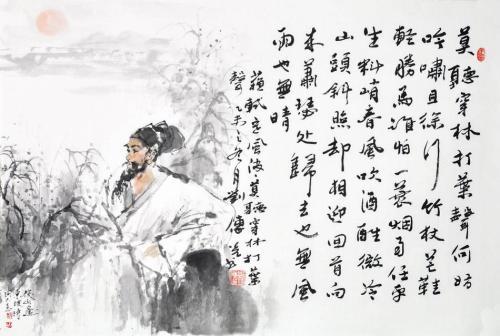 莫聽穿林打葉聲何妨
吟嘯且徐行竹杖芒鞋
輕勝馬誰怕一蓑烟雨任平
生料峭春風吹酒醒微冷
山頭斜照却相迎回首向
來蕭瑟處歸去也無風
雨也無晴
蘇軾定風波莫聽穿林打葉
聲乙未之冬月劉傳